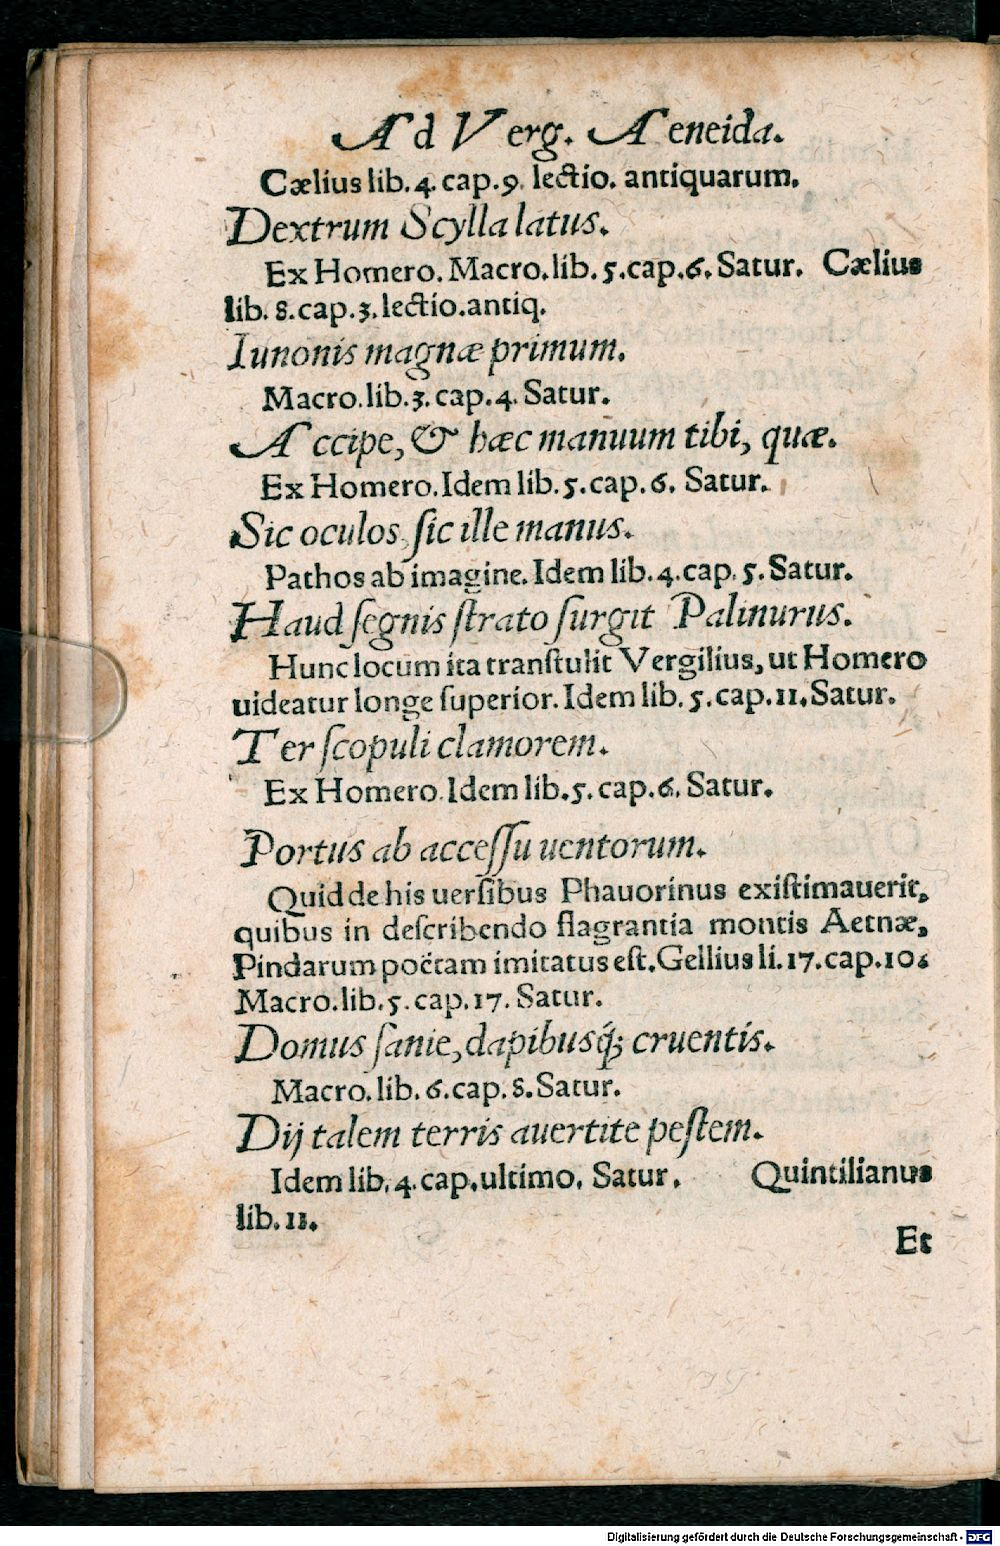 Ad Verg. Aeneida.
Cælius lib. 4. cap. 9. lectio. antiquarum.
Dextrum Scylla latus.
Ex Homero. Macro. lib. 5. cap. 6. Satur. Cælius
lib. 8. cap. 3. lectio. antiq.
Iunonis magnæ primum.
Macro. lib. 3. cap. 4. Satur.
Accipe, & hæc manuum tibi, quæ.
Ex Homero. Idem lib. 5. cap. 6. Satur.
Sic oculos, ſic ille manus.
Pathos ab imagine. Idem lib. 4. cap. 5. Satur.
Haud ſegnis ſtrato ſurgit Palinurus.
Hunc locum ita tranſtulit Vergilius, ut Homero
uideatur longe ſuperior. Idem lib. 5. cap. 11. Satur.
Ter ſcopuli clamorem.
Ex Homero. Idem lib. 5. cap. 6. Satur.
Portus ab acceſſu uentorum.
Quid de his uerſibus Phauorinus exiſtimauerit,
quibus in deſcribendo flagrantia montis Aetnæ,
Pindarum poëtam imitatus eſt. Gellius li. 17. cap. 10.
Macro. lib. 5. cap. 17. Satur.
Domus ſanie, dapibusq́; cruentis.
Macro. lib. 6. cap. 8. Satur.
Dij talem terris auertite peſtem.
Idem lib. 4. cap. ultimo. Satur. Quintilianus
lib. 11.
Et
Digitalisierung gefördert durch die Deutsche Forschungsgemeinschaft - DFG